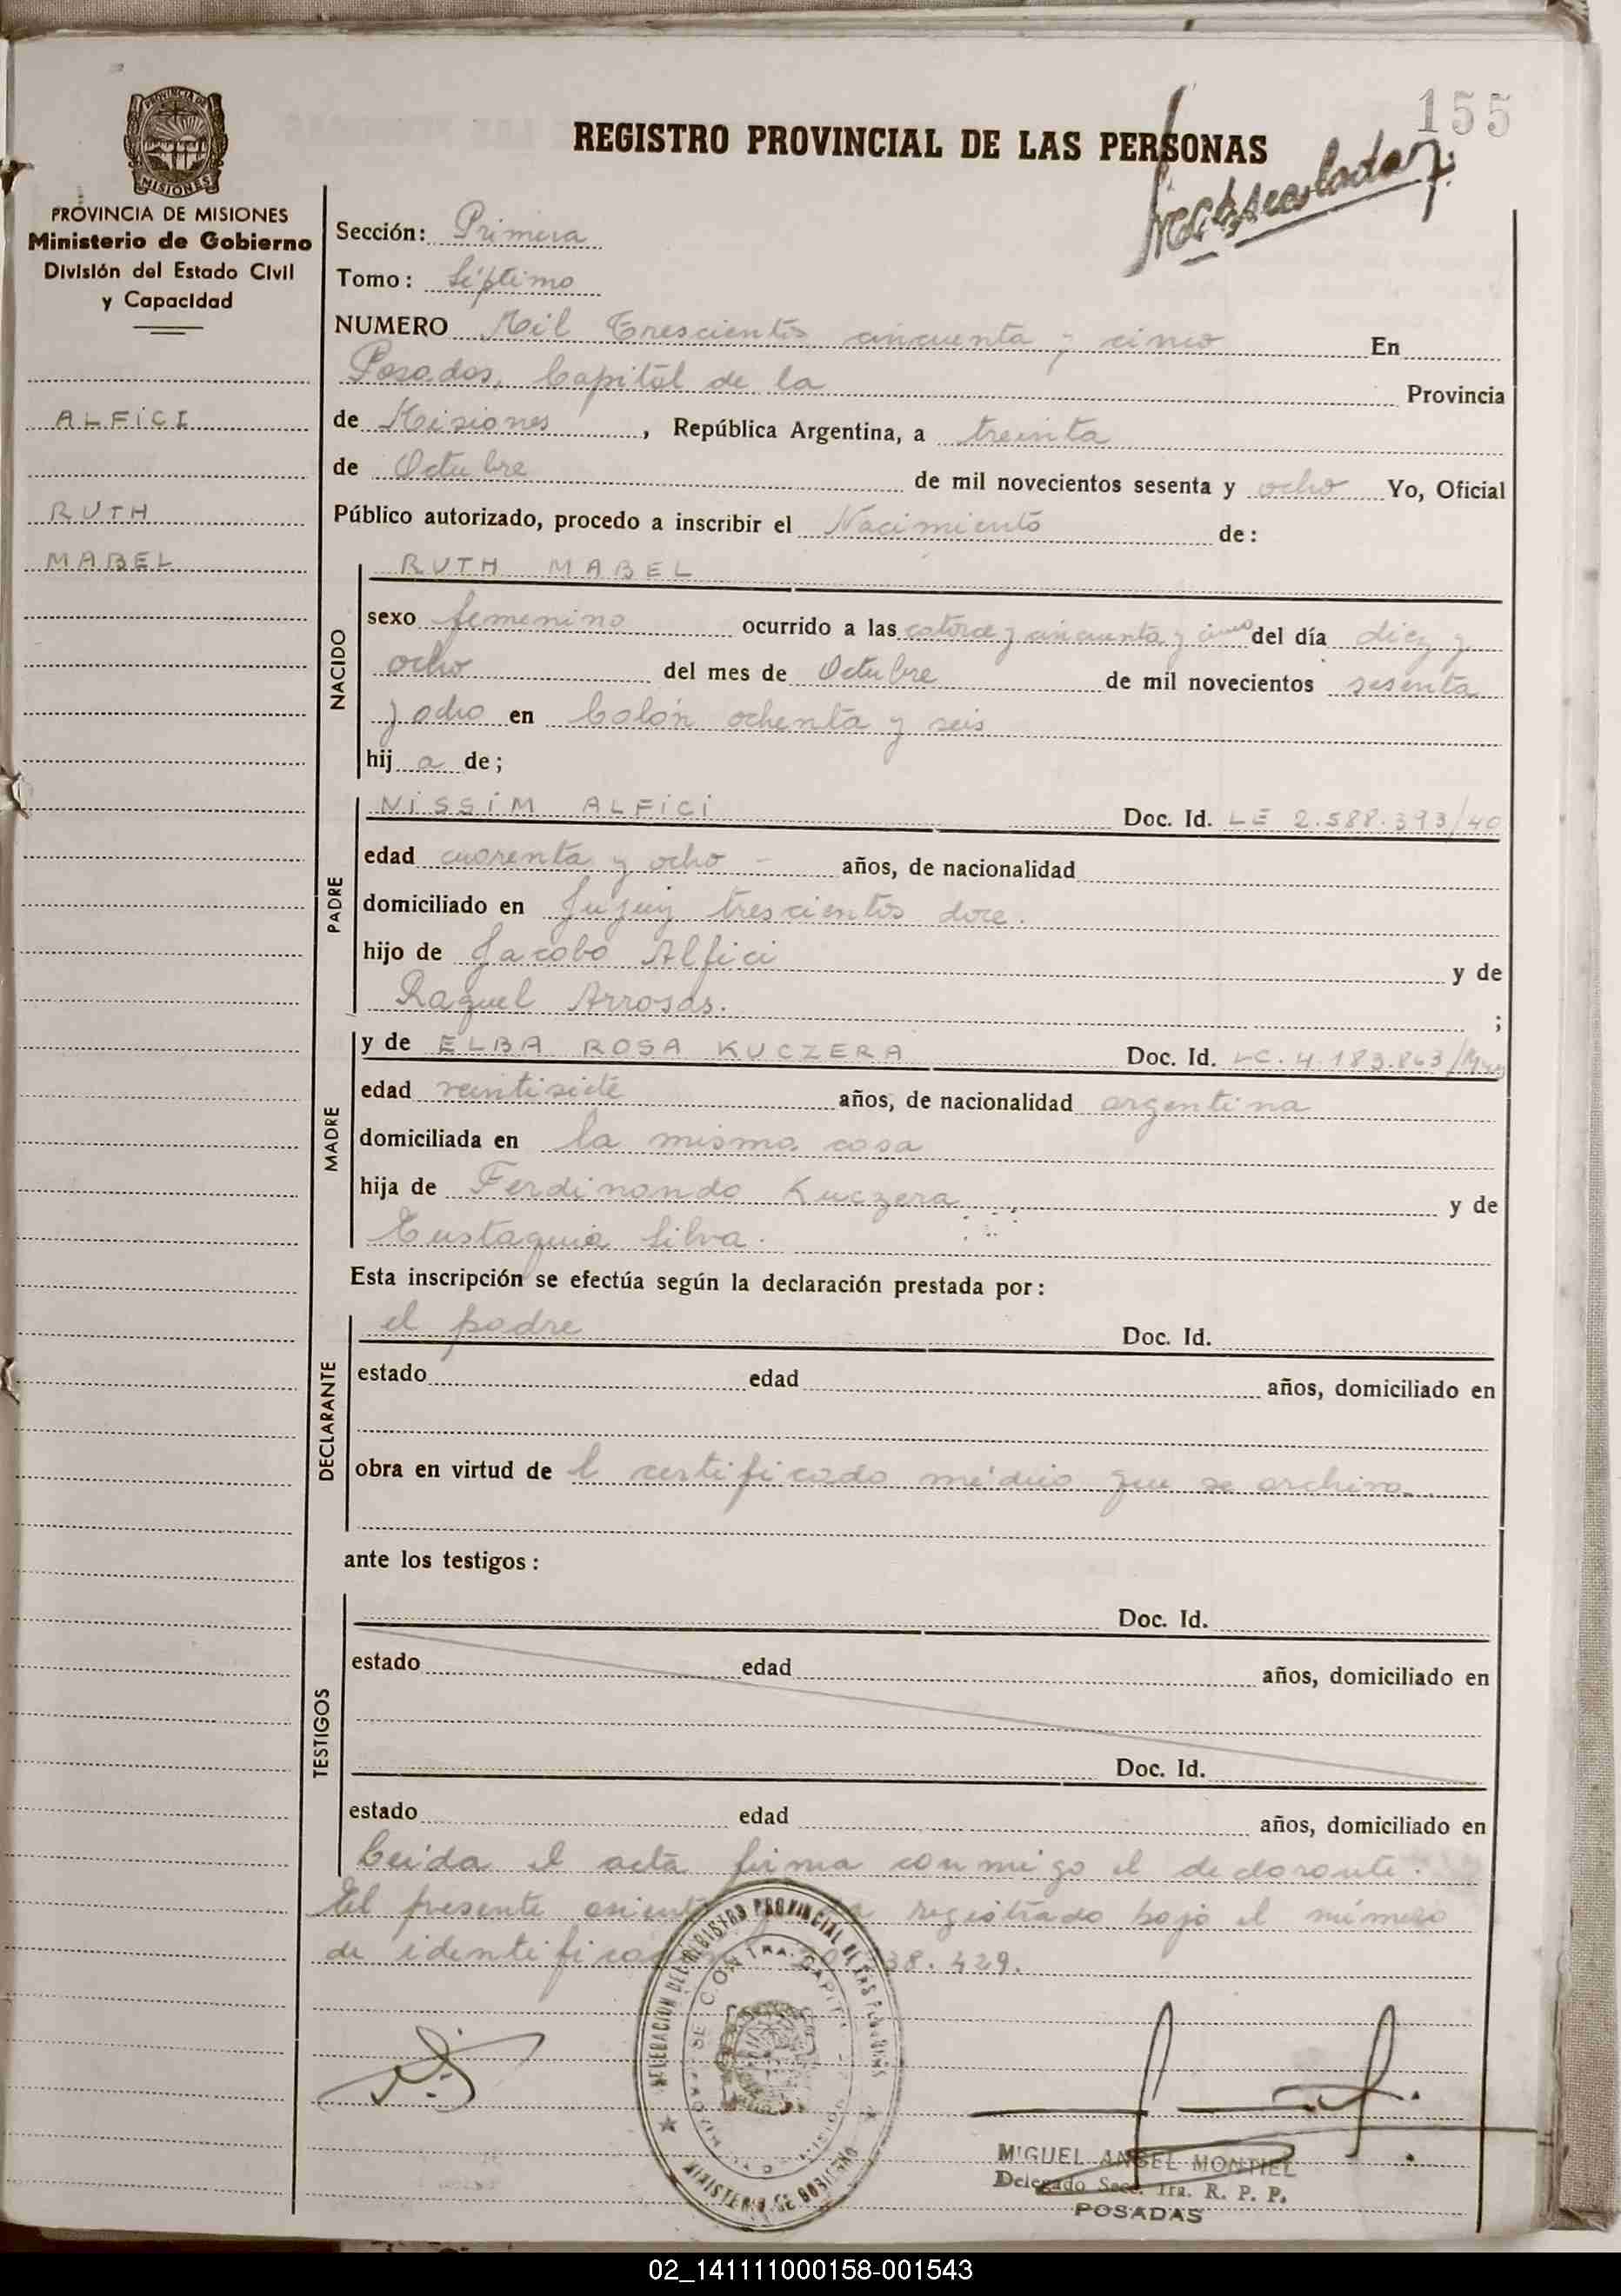 155
REGISTRO PROVINCIAL DE LAS PERSONAS
PROVINCIA DE MISIONES
PROVINCIA DE MISIONES
Ministerio de Gobierno
División del Estado Civil
y Capacidad
ALFICI
RUTH
MABEL
Sección: Primera
Tomo: Séptimo
NUMERO Mil Trescientos cincuenta y cinco En
Posadas, Capital de la Provincia
de Misiones, República Argentina, a treinta
de Octubre de mil novecientos sesenta y ocho Yo, Oficial
Público autorizado, procedo a inscribir el Nacimiento de:
RUTH MABEL
NACIDO
sexo femenino ocurrido a las catorce y cincuenta y cinco del día diez y
ocho del mes de Octubre de mil novecientos sesenta
y ocho en Colón ochenta y seis
hij a de;
PADRE
NISSIM ALFICI Doc. Id. LE 2.588.393/40
edad cuarenta y ocho - años, de nacionalidad
domiciliado en Jujuy trescientos doce.
hijo de Jacobo Alfici y de
Raquel Arrosas. ;
MADRE
y de ELBA ROSA KUCZERA Doc. Id. LC. 4.183.863
edad veintisiete años, de nacionalidad argentina
domiciliada en la misma casa
hija de Ferdinando Kuczera y de
Eustaquia Silva.
Esta inscripción se efectúa según la declaración prestada por:
DECLARANTE
el padre Doc. Id.
estado edad años, domiciliado en
obra en virtud de l certificado médico que se archiva.
ante los testigos:
TESTIGOS
Doc. Id.
estado edad años, domiciliado en
Doc. Id.
estado edad años, domiciliado en
Leida el acta firma conmigo el declarante.
El presente registrado bajo el número
de 38.429.
DELEGACION DEL REGISTRO PROVINCIAL DE LAS PERSONAS
MINISTERIO DE GOBIERNO
MIGUEL ANGEL MONTIEL
Delegado Secc. 1ra. R. P. P.
POSADAS
02_141111000158-001543